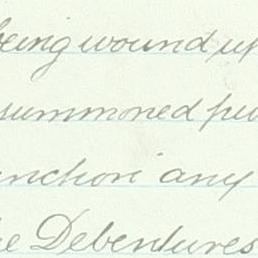 being wound up
summoned pu
anchori any
he Debentures